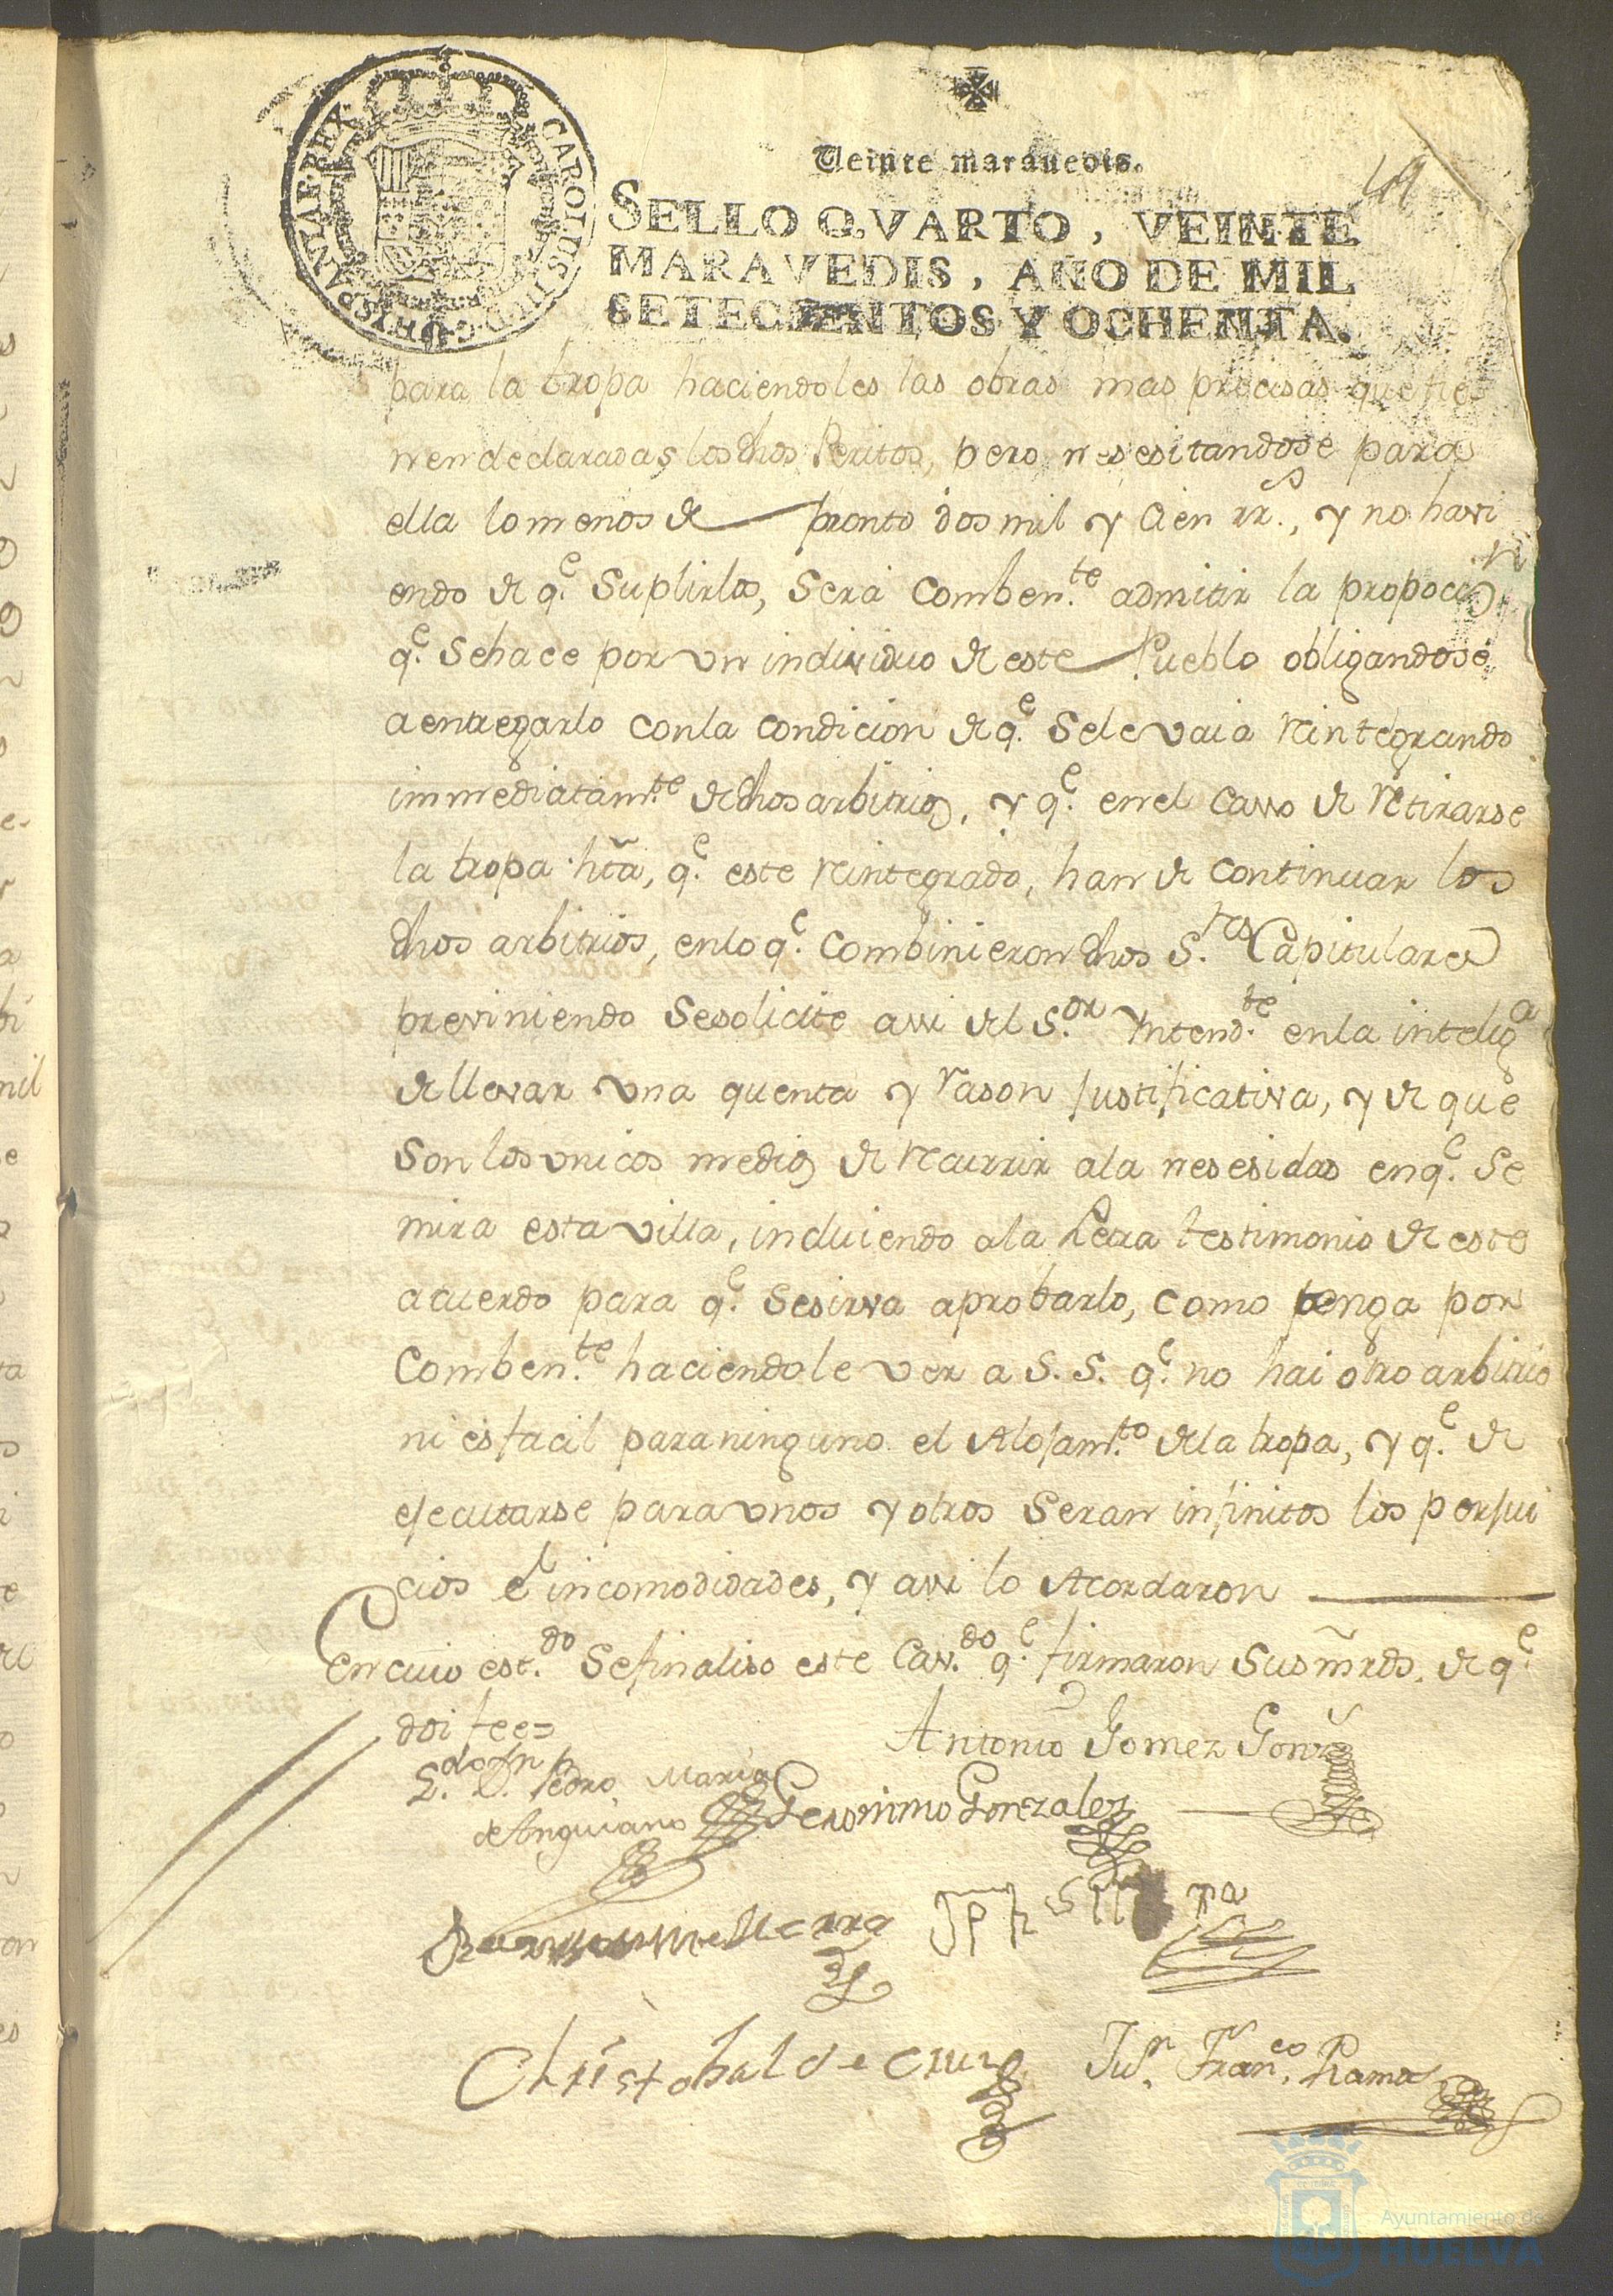 CAROLUS III D G HISPANIAR REX
Veinte maravedis.
SELLO QVARTO, VEINTE
MARAVEDIS, AÑO DE MIL
SETECIENTOS Y OCHENTA.
para la tropa haciendoles las obras mas precisas que tie
nen declaradas los dhos Peritos, pero nesesitandose para
ella lo menos de pronto dos mil y Cien rr.s, y no havi
endo de q.e Suplirlos, Será Comben.te admitir la propocion
q.e Se hace por vn individuo de este Pueblo obligandose
a entregarlo con la condicion de q.e Sele vaia reintegrando
immediatam.te de dhos arbitrios, y q.e en el Casso de retirarse
la tropa hta, q.e este reintegrado, han de Continuar los
dhos arbitrios, en lo q.e Combinieron dhos S.res Capitulares
previniendo Se solicite assi del S.or Yntend.te en la intelig.a
de llevar vna quenta y rason Justificativa, y de que
Son los vnicos medios de recurrir a la nesesidad en q.e Se
mira esta villa, incluiendo a la Letra testimonio de este
acuerdo para q.e Se sirva aprobarlo, Como tenga por
Comben.te haciendole ver a S.S. q.e no hai otro arbitrio
ni es facil para ninguno el Alojam.to de la tropa, y q.e de
ejecutarse para vnos y otros Seran infinitos los perjui
cios é incomodidades, y assi lo Acordaron
En cuio est.do Se finaliso este Cav.do q.e firmaron Sus mrds. de q.e
doi fee=
Antonio Gomez Gonz
L.do Dn Pedro Maria
de Anguiano
Geronimo Gonzalez
Christobal de Cruz
Jun. Fran.co Ramos
Ayuntamiento de
HUELVA